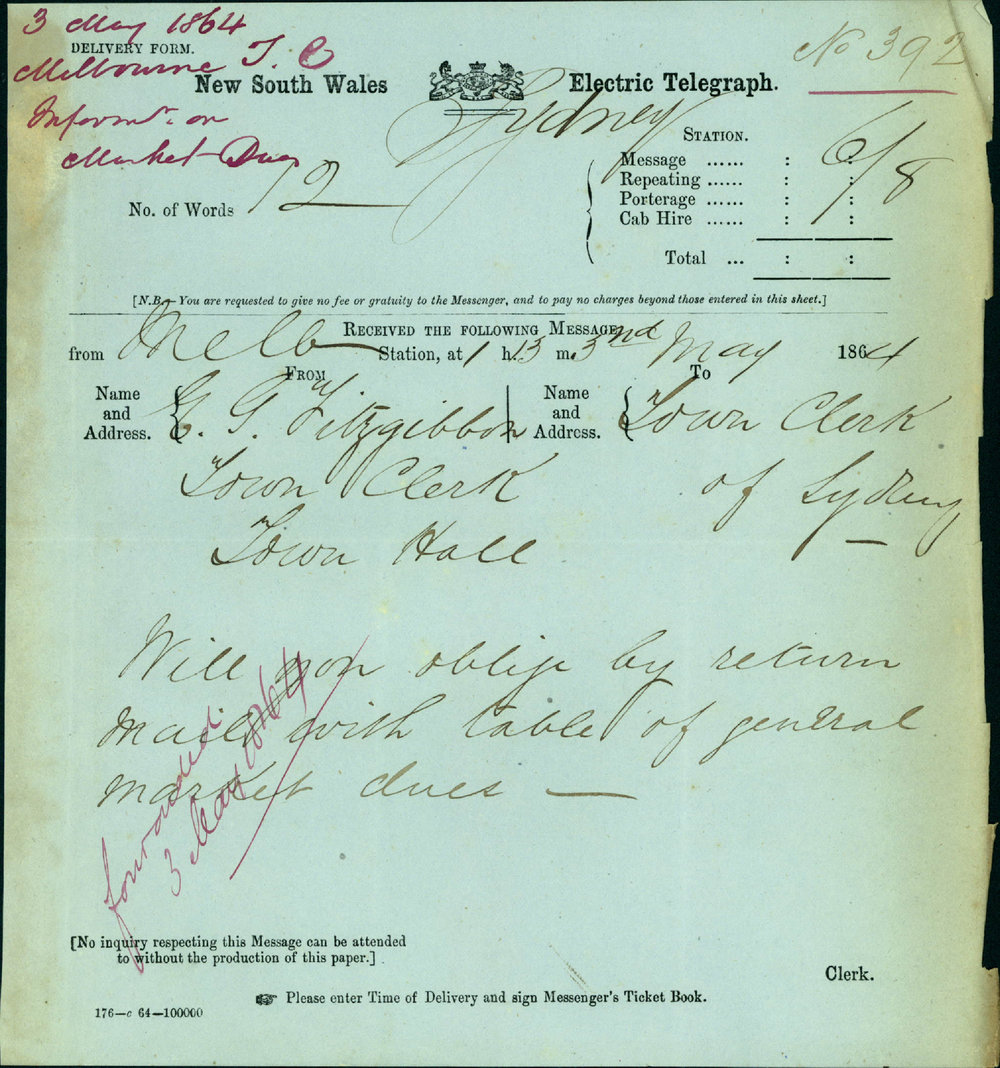 3 May 1864
DELIVERY FORM.
Melbourne T. C
No 392
New South Wales Electric Telegraph.
Informn. on
Market Dues
Sydney
STATION.
Message ...... : 6/8
Repeating ...... : :
Porterage ...... : :
Cab Hire ...... : :
No. of Words 12
Total ... : :
[N.B.—You are requested to give no fee or gratuity to the Messenger, and to pay no charges beyond those entered in this sheet.]
RECEIVED THE FOLLOWING MESSAGE
from Melb Station, at 1 h. 15 m. 3nd May 1864
FROM To
Name and Address. E. G. Fitzgibbon Name and Address. Town Clerk
Town Clerk of Sydney
Town Hall
Will you oblige by return
mail with table of general
market dues —
forwarded
3 May 1864
[No inquiry respecting this Message can be attended
to without the production of this paper.]
Clerk.
☞ Please enter Time of Delivery and sign Messenger's Ticket Book.
176—c 64—100000